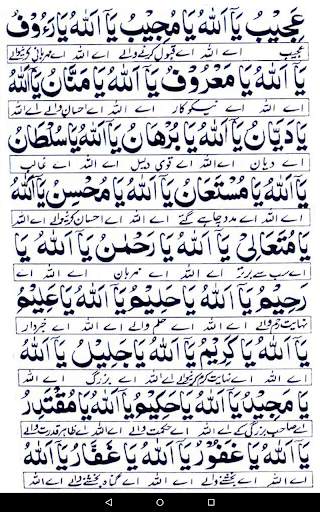 عَجِيْبُ يَآ اَللهُ يَا مُجِيْبُ يَآ اَللهُ يَا رَءُوْفُ
عجیب اے اللہ اے قبول کرنے والے اے اللہ اے مہربانی کرنیوالے
يَآ اَللهُ يَا مَعْرُوْفُ يَآ اَللهُ يَا مَنَّانُ يَآ اَللهُ
اے اللہ اے نیکوکار اے اللہ اے احسان والے اے اللہ
يَا دَيَّانُ يَآ اَللهُ يَا بُرْهَانُ يَآ اَللهُ يَا سُلْطَانُ
اے دیان اے اللہ اے قوی دلیل اے اللہ اے غالب
يَآ اَللهُ يَا مُسْتَعَانُ يَآ اَللهُ يَا مُحْسِنُ يَآ اَللهُ
اے اللہ اے مدد چاہے گئے اے اللہ اے احسان کرنیوالے اے اللہ
يَا مُتَعَالِيْ يَآ اَللهُ يَا رَحْمٰنُ يَآ اَللهُ يَا
اے سب سے برتر اے اللہ اے مہربان اے اللہ اے
رَحِيْمُ يَآ اَللهُ يَا حَلِيْمُ يَآ اَللهُ يَا عَلِيْمُ
نہایت رحم والے اے اللہ اے حلم والے اے اللہ اے خبردار
يَآ اَللهُ يَا كَرِيْمُ يَآ اَللهُ يَا جَلِيْلُ يَآ اَللهُ
اے اللہ اے نہایت کرم کرنیوالے اے اللہ اے بزرگ اے اللہ
يَا مَجِيْدُ يَآ اَللهُ يَا حَكِيْمُ يَآ اَللهُ يَا مُقْتَدِرُ
اے صاحب بزرگی کے اے اللہ اے حکمت والے اے اللہ اے ظاہر قدرت والے
يَآ اَللهُ يَا غَفُوْرُ يَآ اَللهُ يَا غَفَّارُ يَآ اَللهُ
اے اللہ اے بخشنے والے اے اللہ اے گناہ بخشنے والے اے اللہ